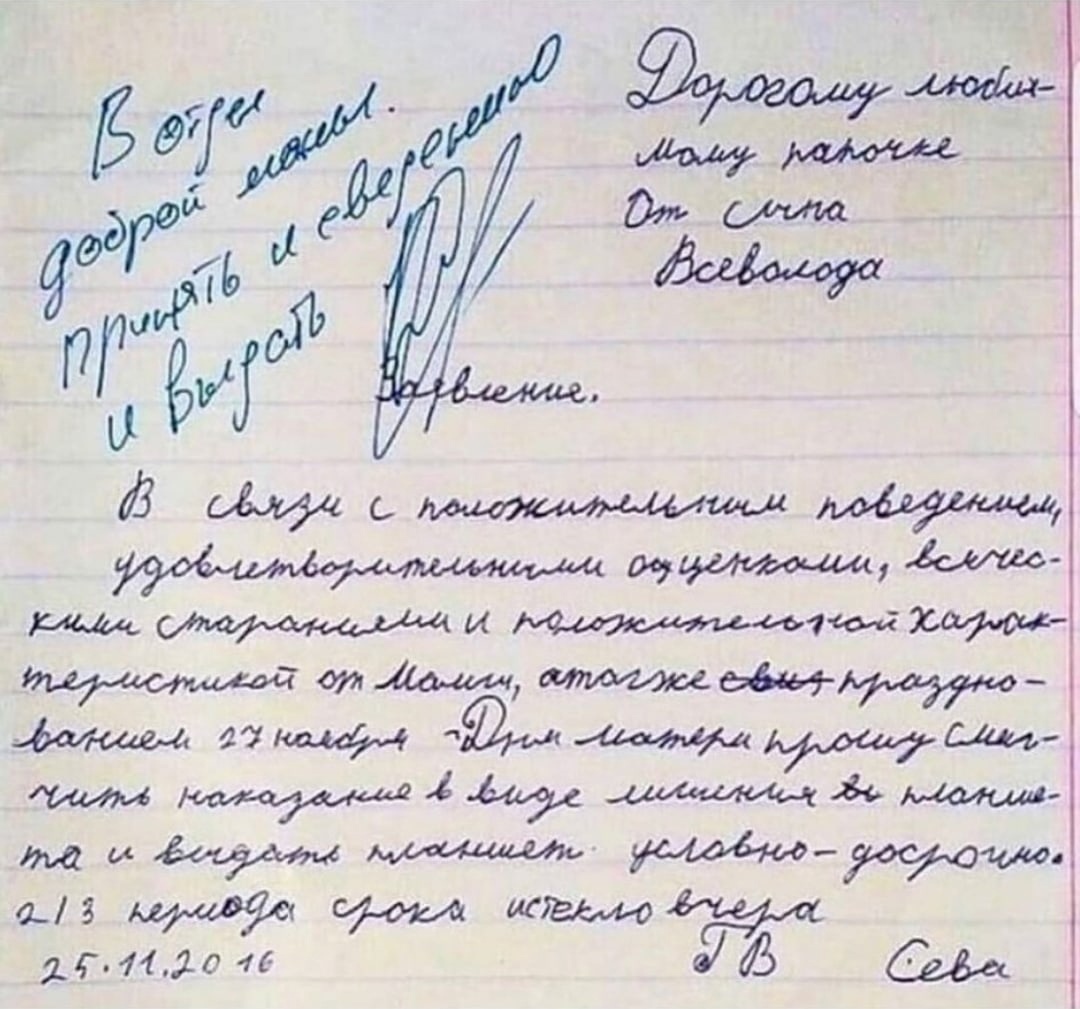 В отдел
доброй мамы.
принять к сведению
и выдать
Дорогому люби-
мому папочке
От сына
Всеволода
Заявление.
В связи с положительным поведением,
удовлетворительными оценками, всячес-
кими стараниями и положительной харак-
теристикой от Мамы, а также праздно-
ванием 27 ноября - Дня матери прошу смяг-
чить наказание в виде лишения планше-
та и выдать планшет условно-досрочно.
2/3 периода срока истекло вчера
25.11.2016 ГВ Сева